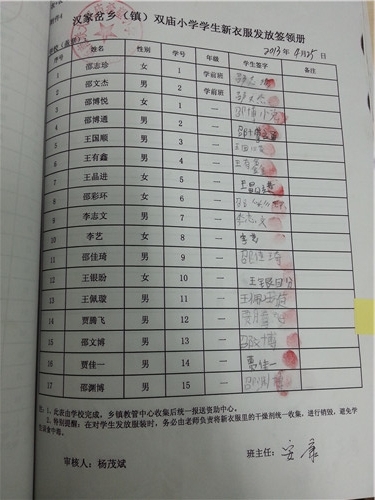 附件4
汉家岔乡（镇）双庙小学学生新衣服发放签领册
2013年4月25日
序号 姓名 性别 学号 年级 学生签字 备注
1 邵志珍 女 1 学前班
2 邵文杰 男 2 学前班 邵文杰
3 邵博悦 女 1 一
4 邵博通 男 2 一
5 王国顺 男 3 一 王国顺
6 王有鑫 男 4 一 王有鑫
7 王晶进 女 5 一 王晶进
8 邵彩环 女 6 一
9 李志文 男 7 一 李志文
10 李艺 女 8 一 李艺
11 邵佳琦 男 9 一 邵佳琦
12 王银盼 女 10 一 王银盼
13 王佩璇 男 11 一 王佩璇
14 贾腾飞 男 12 一
15 邵文博 男 13 一 邵文博
16 贾佳一 男 14 一 贾佳一
17 邵渊博 男 15 一 邵渊博
注：1、此表由学校完成，乡镇教管中心收集后统一报送资助中心。
2、特别提醒：在对学生发放服装时，务必由老师负责将新衣服里的干燥剂统一收集，进行销毁，避免学生误食中毒。
审核人：杨茂斌 班主任：安康